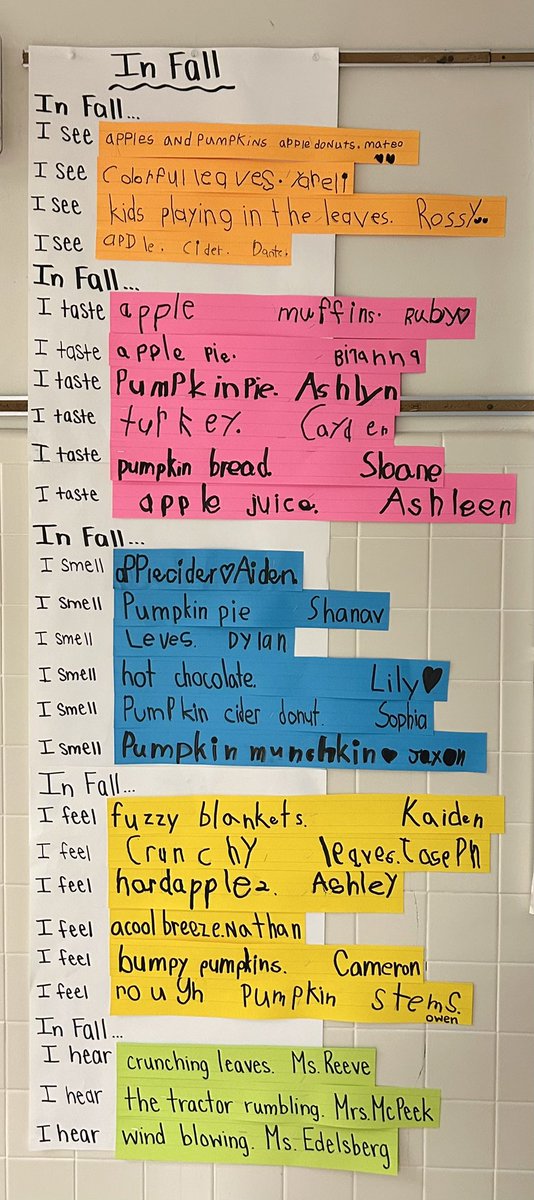 In Fall
In Fall...
I see apples and pumpkins apple donuts. mateo
I see Colorful leaves. Yareli
I see kids playing in the leaves. Rossy
I see apple. Cider. Dante.
In Fall...
I taste apple muffins. Ruby♡
I taste apple pie. Brianna
I taste Pumpkin pie. Ashlyn
I taste turkey. Cayden
I taste pumpkin bread. Sloane
I taste apple juice. Ashleen
In Fall...
I smell applecider♡Aiden.
I smell Pumpkin pie Shanav
I smell Leves. Dylan
I smell hot chocolate. Lily♥
I smell Pumpkin cider donut. Sophia
I smell Pumpkin munchkin♥ Jaxon
In Fall...
I feel fuzzy blankets. Kaiden
I feel Crunchy leaves. Joseph
I feel hard apples. Ashley
I feel a cool breeze. Nathan
I feel bumpy pumpkins. Cameron
I feel rough pumpkin stems. owen
In Fall...
I hear crunching leaves. Ms. Reeve
I hear the tractor rumbling. Mrs. McPeek
I hear wind blowing. Ms. Edelsberg